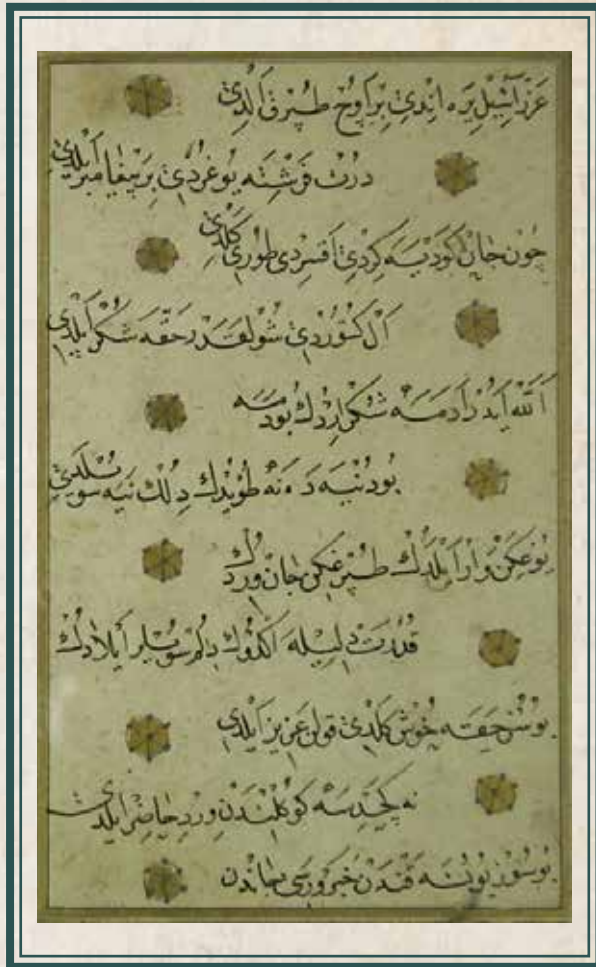 عَزرَائِيلْ يِرَه اِنْدِئ بِرْ اَوُجْ طُپْرَقْ اَلْدِئ
دُرْتْ فَرِشْتَه يُوغُرْدُئ بِرْ پَيْغَامْبَرْ اَيْلَدِي
چُونْ جَانْ كَودَيَه كِرْدِئ اَقْسِرْدِى طُورِى كَلْدِئ
اَلْ كَتُورْدِئ شُولْقَدَرْ حَقَّه شُكُرْ اَيْلَدِي
اَللّٰه اَيْدُرْ اَدَمَه شُكُرْ اِرْدُكْ بُو دَمَه
بُو دُنْيَه دَه نَه طُويْدُكْ دِلُكْ نَيَه سُويْلَدِي
يُوغِكَنْ وَارْ اَيْلَدُكْ طُپْرَغِكَنْ جَانْ وِرْدُكْ
قُدْرَتْ دِلِيلَه اَكْدُوكْ دِلُمْ سُويْلَرْ اَيْلَادُكْ
بُو سُزْ حَقَّه خُوشْ كَلْدِئ قُولِنْ عَزِيزْ اَيْلَدِي
نَه كِچَدِسَه كَوكُلِنْدَنْ وِرْدِ حَاضِرْ اَيْلَدِي
بُو سُوزْ يُونُسَه قَنْدَنْ خَبَرْ وِرَسَى جَانْدَنْ